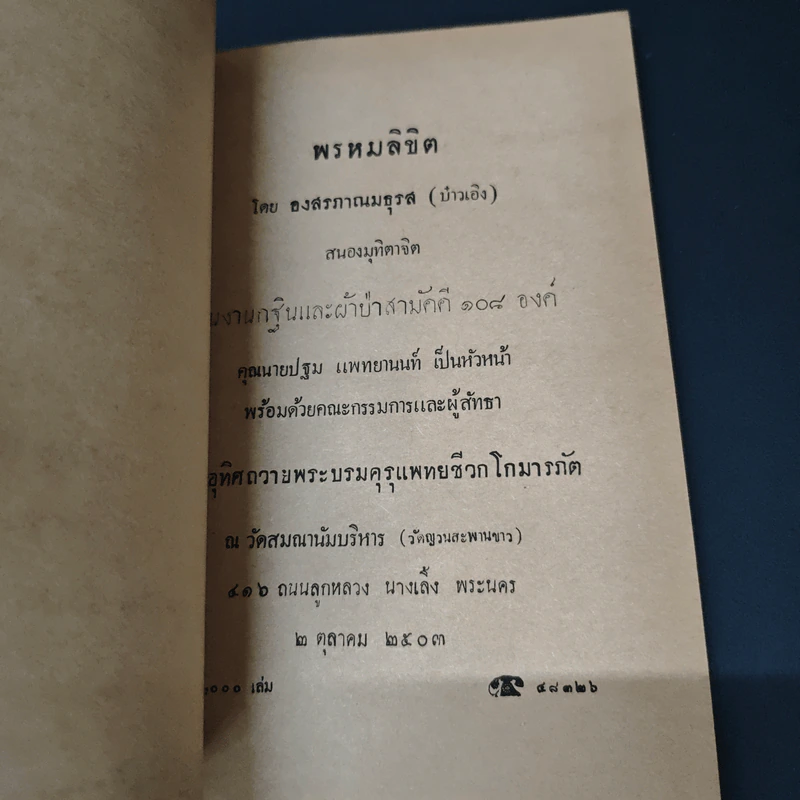 พรหมลิขิต
โดย องสรภาณมธุรส (บ๋าวเอิง)
สนองมุทิตาจิต
งานกฐินและผ้าป่าสามัคคี ๑๐๘ องค์
คุณนายปฐม แพทยานนท์ เป็นหัวหน้า
พร้อมด้วยคณะกรรมการและผู้สัทธา
อุทิศถวายพระบรมคุรุแพทยชีวกโกมารภัต
ณ วัดสมณานัมบริหาร (วัดญวนสะพานขาว)
๔๑๖ ถนนลูกหลวง นางเลิ้ง พระนคร
๒ ตุลาคม ๒๕๐๓
๐๐๐ เล่ม
๔๘๓๒๖